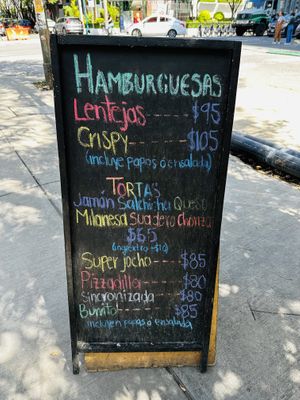 HAMBURGUESAS
Lentejas $95
Crispy $105
(incluye papas ó ensalada)
TORTAS
Jamón Salchicha Queso
Milanesa Suadero Choriza
$65
(ingr extra +$10)
Super jocho $85
Pizzadilla $80
Sincronizada $80
Burrito $85
incluyen papas ó ensalada